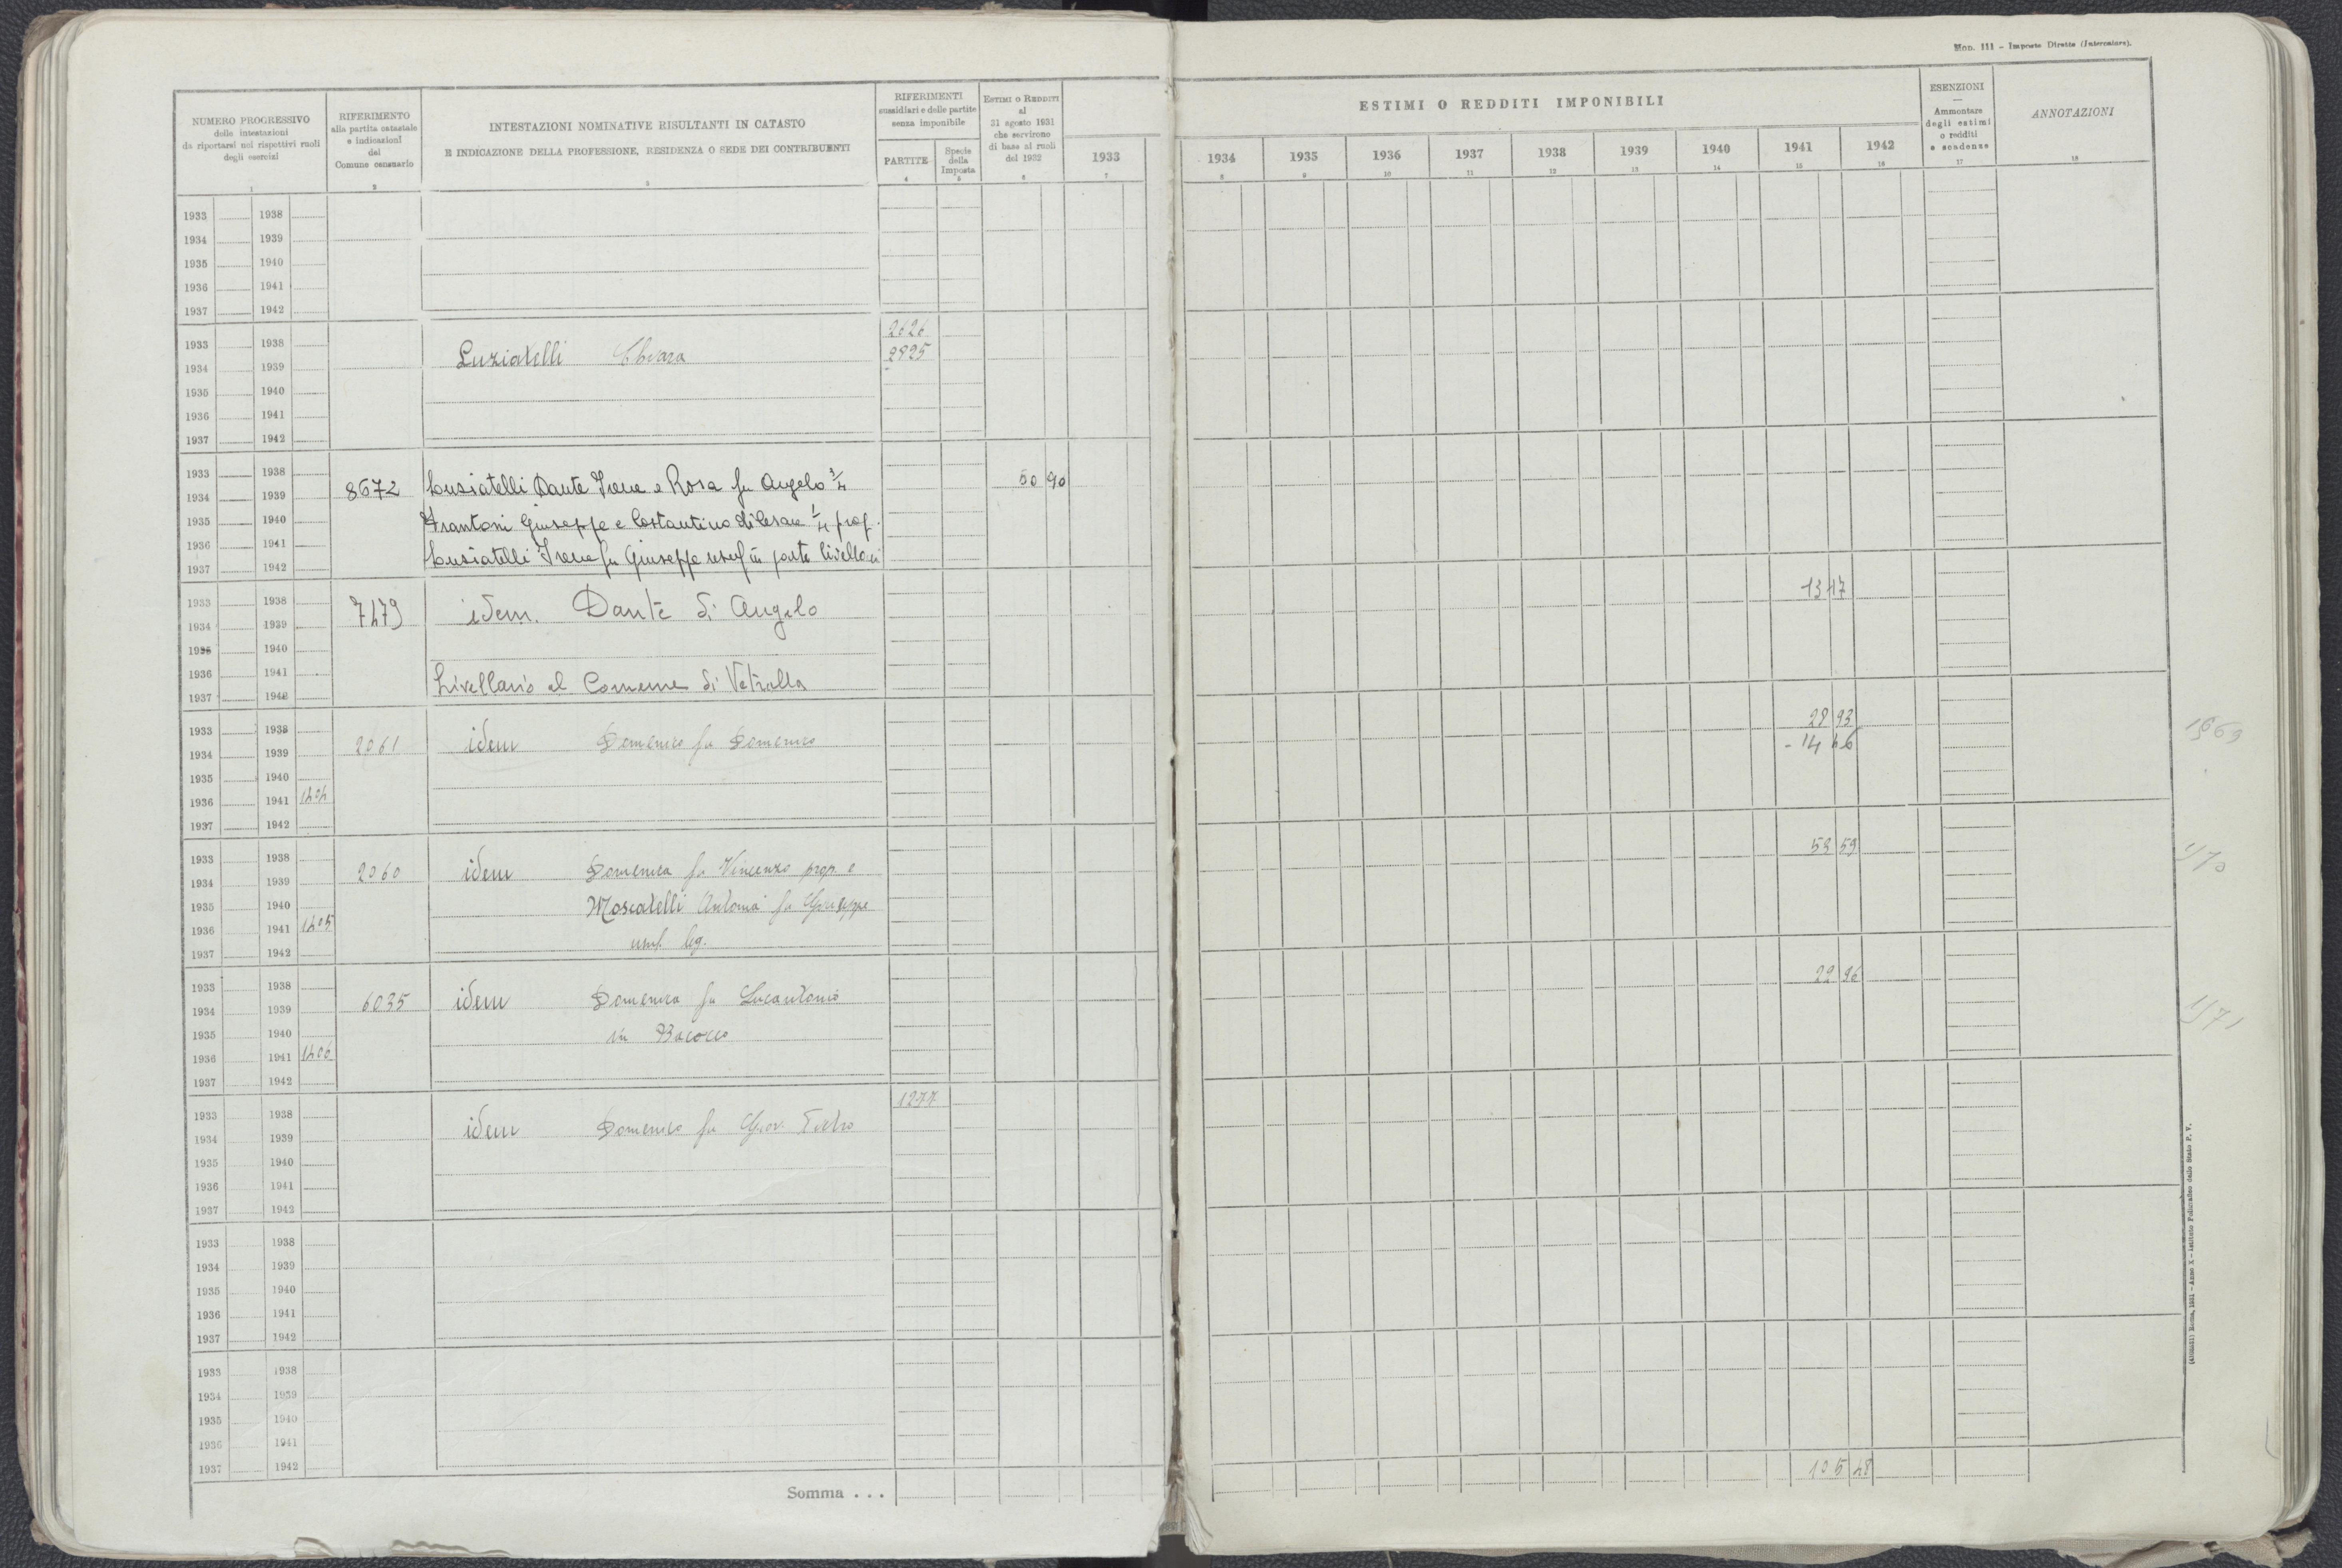 Mod. 111 – Imposte Dirette (Intercalare).
NUMERO PROGRESSIVO
delle intestazioni
da riportarsi nei rispettivi ruoli
degli esercizi
1
RIFERIMENTO
alla partita catastale
e indicazioni
del
Comune censuario
2
INTESTAZIONI NOMINATIVE RISULTANTI IN CATASTO
E INDICAZIONE DELLA PROFESSIONE, RESIDENZA O SEDE DEI CONTRIBUENTI
3
RIFERIMENTI
sussidiari e delle partite
senza imponibile
PARTITE
4
Specie
della
Imposta
5
Estimi o Redditi
al
31 agosto 1931
che servirono
di base ai ruoli
del 1932
6
ESTIMI O REDDITI IMPONIBILI
1933 1934 1935 1936 1937 1938 1939 1940 1941 1942
7 8 9 10 11 12 13 14 15 16
ESENZIONI
—
Ammontare
degli estimi
o redditi
e scadenze
17
ANNOTAZIONI
18
1933 1938
1934 1939
1935 1940
1936 1941
1937 1942
2626
1933 1938
Luziatelli Chiara 2825
1934 1939
1935 1940
1936 1941
1937 1942
1933 1938
8672 Luziatelli Dante Irene e Rosa fu Angelo 3/4 50 90
1934 1939
1935 1940
Giuseppe e Costantino di Cesare 1/4 prop.
1936 1941
Luziatelli Irene fu Giuseppe usuf in parte livellari
1937 1942
13 17
1933 1938
7479 idem. Dante di Angelo
1934 1939
1935 1940
1936 1941
Livellario al Comune di Vetralla
1937 1942
28 93
1933 1938
2061 idem Domenico fu Domenico - 14 46
1934 1939
1935 1940
1936 1941 1404
1937 1942
53 59
1933 1938
2060 idem Domenica fu Vincenzo prop. e
1934 1939
1935 1940
Moscatelli Antonia fu Giuseppe
1936 1941 1405
usuf. leg.
1937 1942
22 96
1933 1938
6035 idem Domenica fu Lucantonio
1934 1939
1935 1940
in Bacocco
1936 1941 1406
1937 1942
1277
1933 1938
idem Domenico fu Giov. Pietro
1934 1939
1935 1940
1936 1941
1937 1942
1933 1938
1934 1939
1935 1940
1936 1941
1937 1942
1933 1938
1934 1939
1935 1940
1936 1941
1937 1942
105 48
Somma . . .
Roma, 1931 – Anno X – Istituto Poligrafico dello Stato P. V.